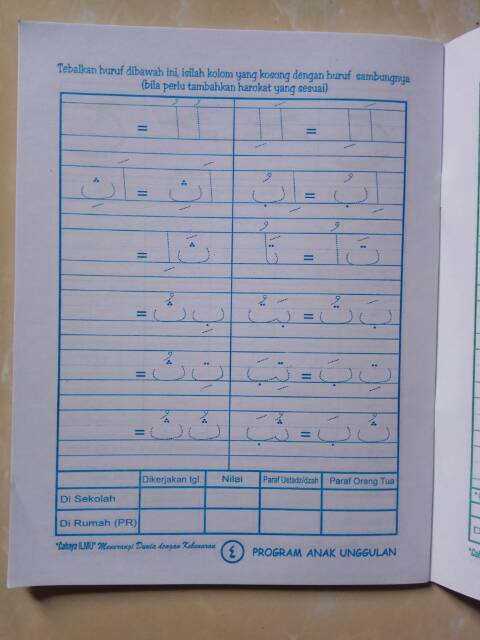 Tebalkan huruf dibawah ini, isilah kolom yang kosong dengan huruf sambungnya
(bila perlu tambahkan harokat yang sesuai)
بَ تُ = بَتُ
بِ ثُ =
تِ بَ = تِبَ
تِ ثُ =
ثُ بَ = ثُبَ
ثُ ثُ =
Dikerjakan tgl. Nilai Paraf Ustadz/dzah Paraf Orang Tua
Di Sekolah
Di Rumah (PR)
"Cahaya ILMU" Menerangi Dunia dengan Kebenaran ٤ PROGRAM ANAK UNGGULAN